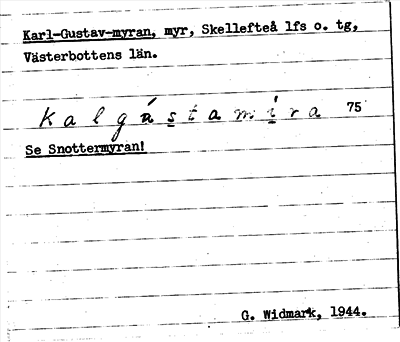 Karl-Gustav-myran, myr, Skellefteå lfs o. tg,
Västerbottens län.
kalgástamíra 75
Se Snottermyran!
G. Widmark, 1944.